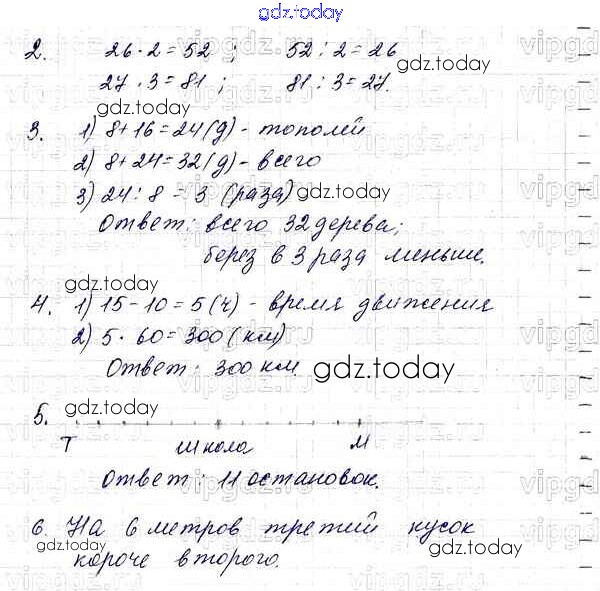 gdz.today
2. 26·2=52; 52:2=26
gdz.today
27·3=81; 81:3=27.
gdz.today
3. 1) 8+16=24(д)-тополей
2) 8+24=32(д)-всего
3) 24:8-3 (раза) gdz.today
Ответ: всего 32 дерева;
берёз в 3 раза меньше.
gdz.today
4. 1) 15-10=5(ч)-время движения
2) 5·60=300(км)
Ответ: 300 км. gdz.today
5. gdz.today
Т школа М
Ответ: 11 остановок.
6. На 6 метров третий кусок
gdz.today
короче второго. gdz.today